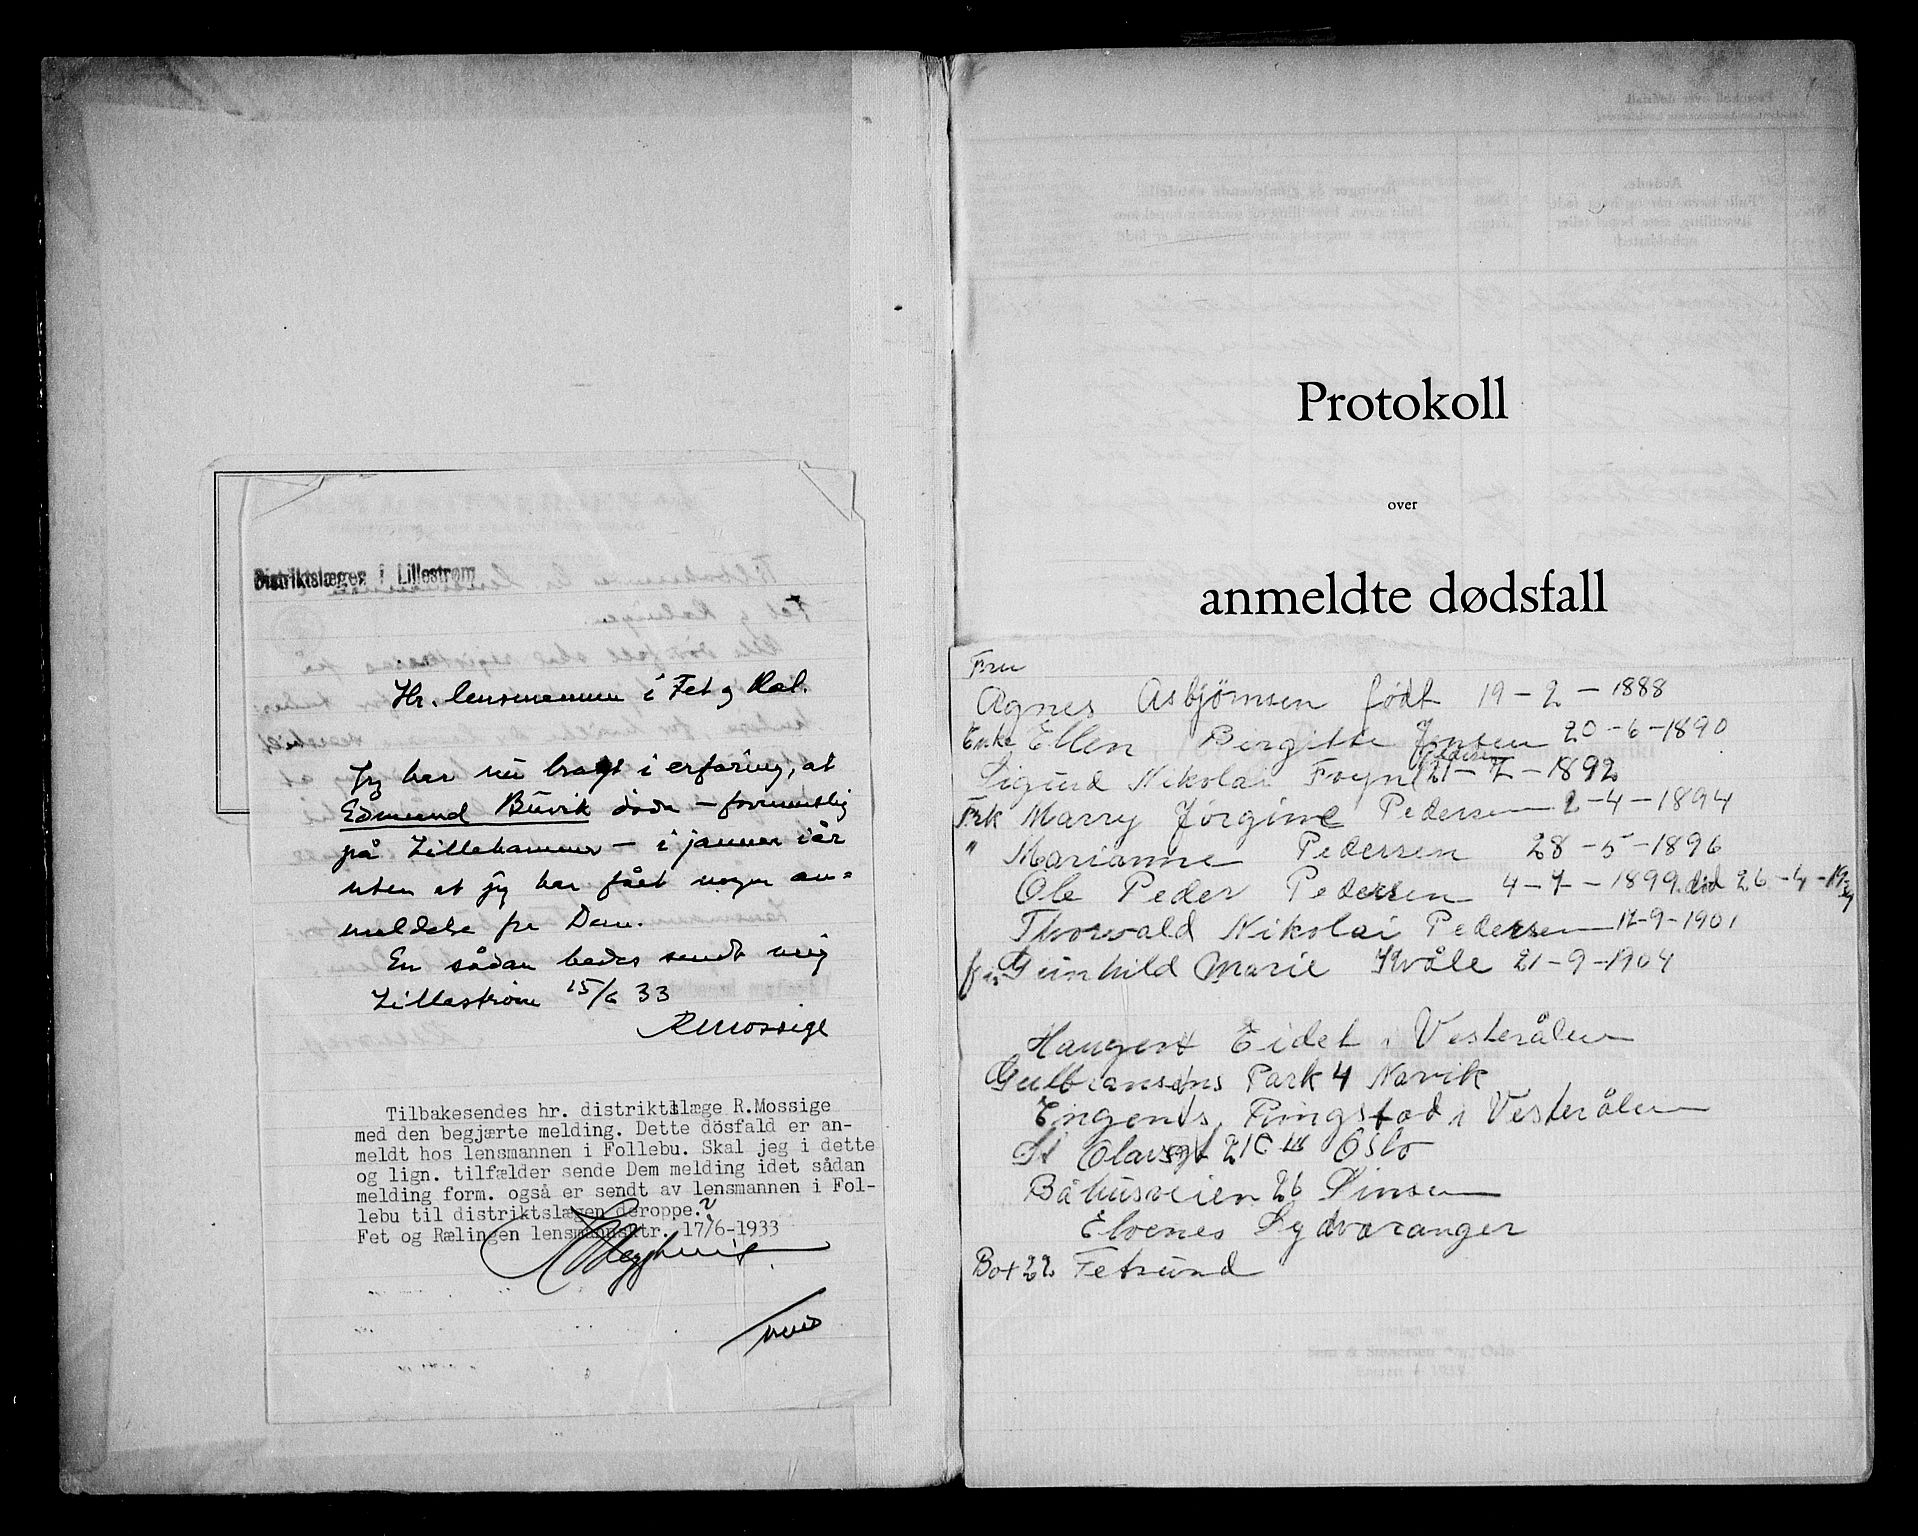 Distriktslægen i Lillestrøm
Hr. lensmannen i Fet og Ræl.
Jeg har nu bragt i erfaring, at
Edmund Buvik døde – formentlig
på Lillehammer – i januar iår
uten at jeg har fået nogen an=
meldelse fra Dem.
En sådan bedes sendt mig
Lillestrøm 15/6 33
R Mossige
Tilbakesendes hr. distriktslæge R.Mossige
med den begjærte melding. Dette dösfald er an-
meldt hos lensmannen i Follebu. Skal jeg i dette
og lign. tilfælder sende Dem melding idet sådan
melding form. også er sendt av lensmannen i Fol-
lebu til distriktslægen deroppe.?
Fet og Rælingen lensmannsktr. 17/6-1933
Protokoll
over
anmeldte dødsfall
Fru
Agnes Asbjørnsen født 19-2-1888
Enke Ellen Birgitte Jensen 20-6-1890
Pedersen
Sigurd Nikolai Foyn 21-7-1892
Frk Marry Jørgine Pedersen 2-4-1894
" Marianne Pedersen 28-5-1896
Ole Peder Pedersen 4-7-1899 død 26-4-19
Thorvald Nikolai Pedersen 17-9-1901
fru Gunhild Marie Kvåle 21-9-1904
Haugen Eidet i Vesterålen
Gulbransens Park 4 Narvik
Engenes, Ringstad i Vesterålen
St Olavsgt 21 C III Oslo
Båhusveien 26 Sinsen
Elvenes Sydvaranger
Box 22 Fetsund